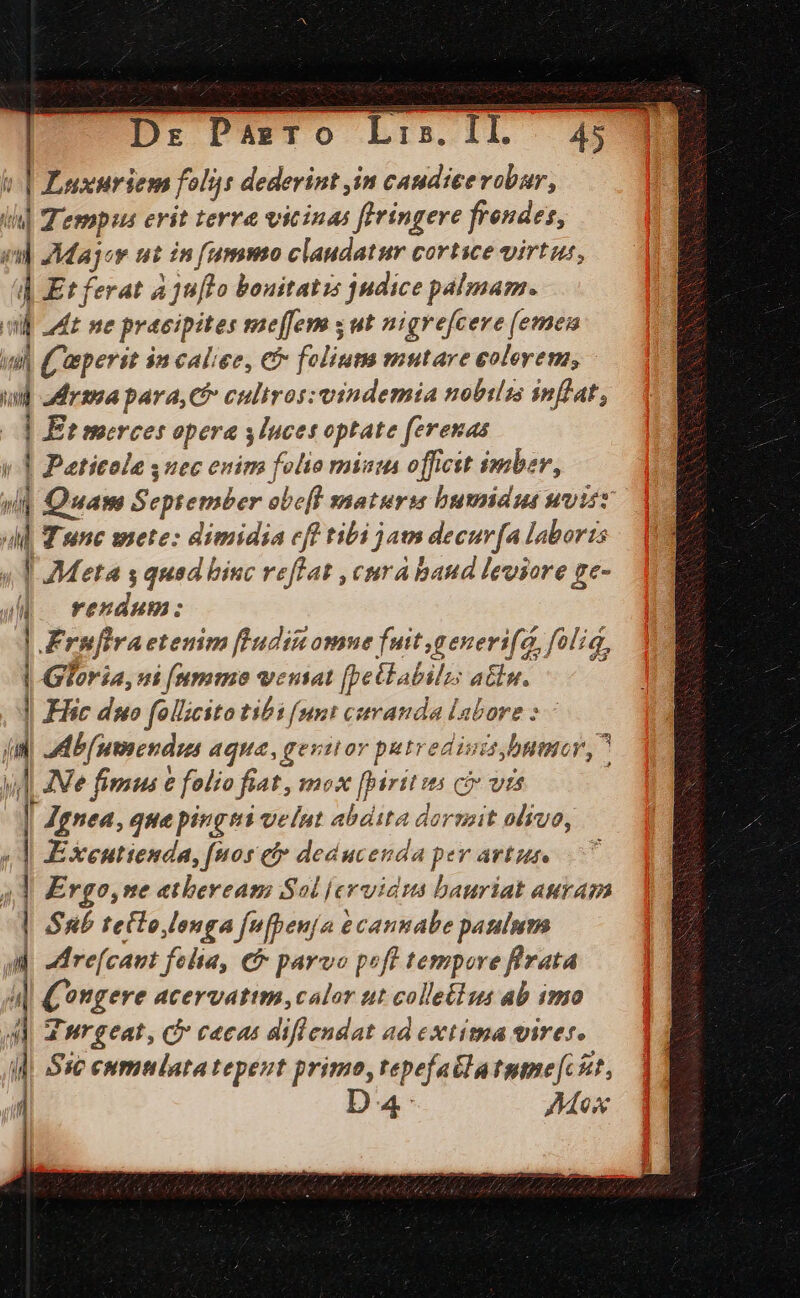 De Pæto Lib. II. 45
Luxuriem folijs dederint, in caudice robur,
Tempus erit terræ vicinas ſtringere frondes,
Major ut in ſummo claudatur cortice virtus,
Et ferat à juſto bonitatis judice palmam.
At ne præcipites meſſem; ut nigreſcere ſemen
Cœperit in calice, & folium mutare colorem,
Arma para, & cultros: vindemia nobilis inſtat,
Et merces operæ; luces optate ſerenas
Peticolæ; nec enim folio minus officit imber,
Quam September obeſt maturis humidus uvis:
Tunc mete: dimidia eſt tibi jam decurſa laboris
Meta; quod hinc reſtat, curâ haud leviore ge-
rendum:
Fruſtra etenim ſtudiũ omne fuit, generiſq́; ſoliq́,
Gloria, ni ſummo veniat ſpectabilis actu.
Hic duo ſollicito tibi ſunt curanda labore:
Abſumendus aquæ, genitor putredinis, humor,
Ne fimus è folio fiat, mox ſpiritus & vis
Ignea, quæ pingui velut abdita dormit olivo,
Excutienda, ſuos & deducenda per artus.
Ergo, ne ætheream Sol fervidus hauriat auram
Sub tecto, longa ſuſpenſa è cannabe paulum
Areſcant folia, & parvo poſt tempore ſtrata
Congere acervatim, calor ut collectus ab imo
Turgeat, & cæcas diſtendat ad extima vires.
Sic cumulata tepent primo, tepefacta tumeſcũt,
D 4 Mox